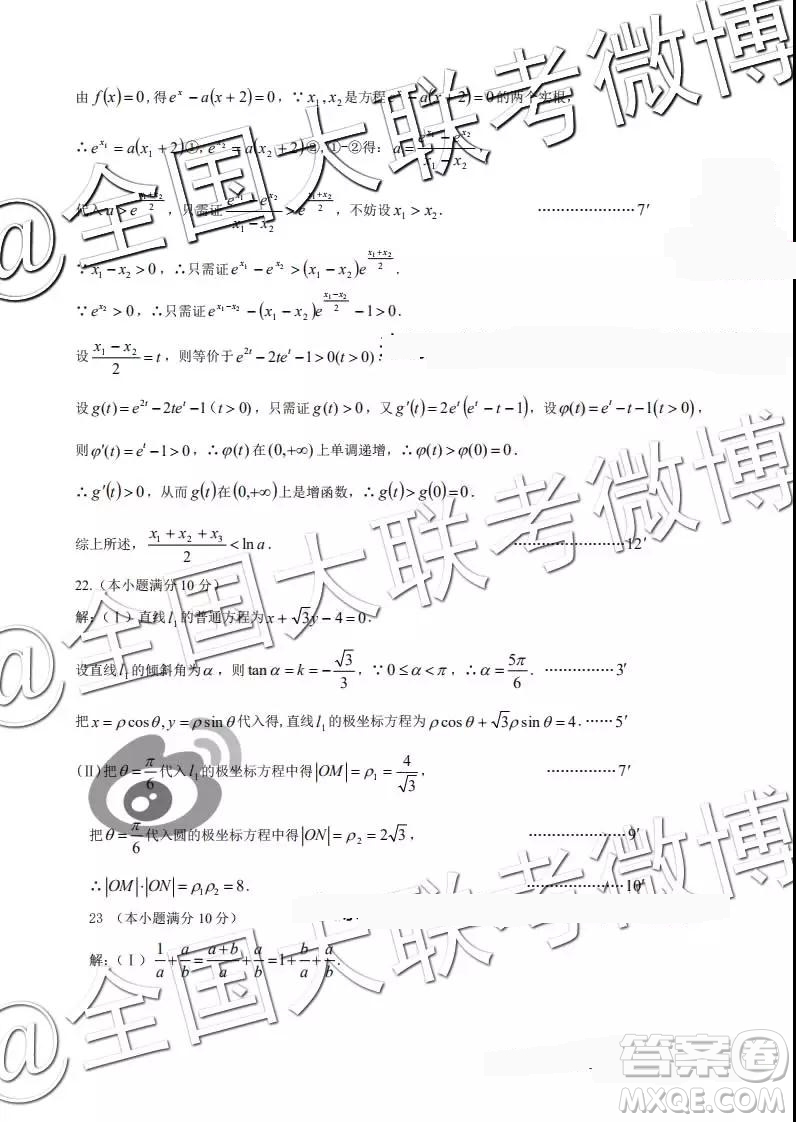 由 f(x)=0,得 e^x－a(x＋2)=0，∵ x₁,x₂ 是方程 e^x－a(x＋2)=0 的两个实根，
∴ e^{x₁}=a(x₁＋2)①, e^{x₂}=a(x₂＋2)②,①-②得: a=\frac{e^{x₁}－e^{x₂}}{x₁－x₂}，
代入 a>e^{\frac{x₁+x₂}{2}}，只需证 \frac{e^{x₁}－e^{x₂}}{x₁－x₂}>e^{\frac{x₁+x₂}{2}}，不妨设 x₁>x₂. …………………7′
∵ x₁－x₂>0，∴只需证 e^{x₁}－e^{x₂}>(x₁－x₂)e^{\frac{x₁+x₂}{2}}.
∵ e^{x₂}>0，∴只需证 e^{x₁－x₂}－(x₁－x₂)e^{\frac{x₁－x₂}{2}}－1>0.
设 \frac{x₁－x₂}{2}=t，则等价于 e^{2t}－2te^t－1>0(t>0).
设 g(t)=e^{2t}－2te^t－1（t>0），只需证 g(t)>0，又 g′(t)=2e^t(e^t－t－1)，设 φ(t)=e^t－t－1(t>0)，
则 φ′(t)=e^t－1>0，∴ φ(t) 在 (0,+∞) 上单调递增，∴ φ(t)>φ(0)=0.
∴ g′(t)>0，从而 g(t) 在 (0,+∞) 上是增函数，∴ g(t)>g(0)=0.
综上所述，\frac{x₁＋x₂＋x₃}{2}<ln a. ……………………12′
22.（本小题满分 10 分）
解：（Ⅰ）直线 l₁ 的普通方程为 x＋√3y－4=0.
设直线 l₁ 的倾斜角为 α，则 tanα=k=－\frac{√3}{3}，∵ 0≤α<π，∴ α=\frac{5π}{6}. ……………3′
把 x=ρcosθ, y=ρsinθ 代入得,直线 l₁ 的极坐标方程为 ρcosθ＋√3ρsinθ=4.……5′
(Ⅱ)把 θ=\frac{π}{6} 代入 l₁ 的极坐标方程中得 |OM|=ρ₁=\frac{4}{√3}， ……………7′
把 θ=\frac{π}{6} 代入圆的极坐标方程中得 |ON|=ρ₂=2√3， …………………9′
∴ |OM|·|ON|=ρ₁ρ₂=8. …………………10′
23 （本小题满分 10 分）
解：（Ⅰ）\frac{1}{a}＋\frac{a}{b}=\frac{a＋b}{a}＋\frac{a}{b}=1＋\frac{b}{a}＋\frac{a}{b}.
@全国大联考微博
@全国大联考微博
@全国大联考微博
答案卷
MXQE.COM